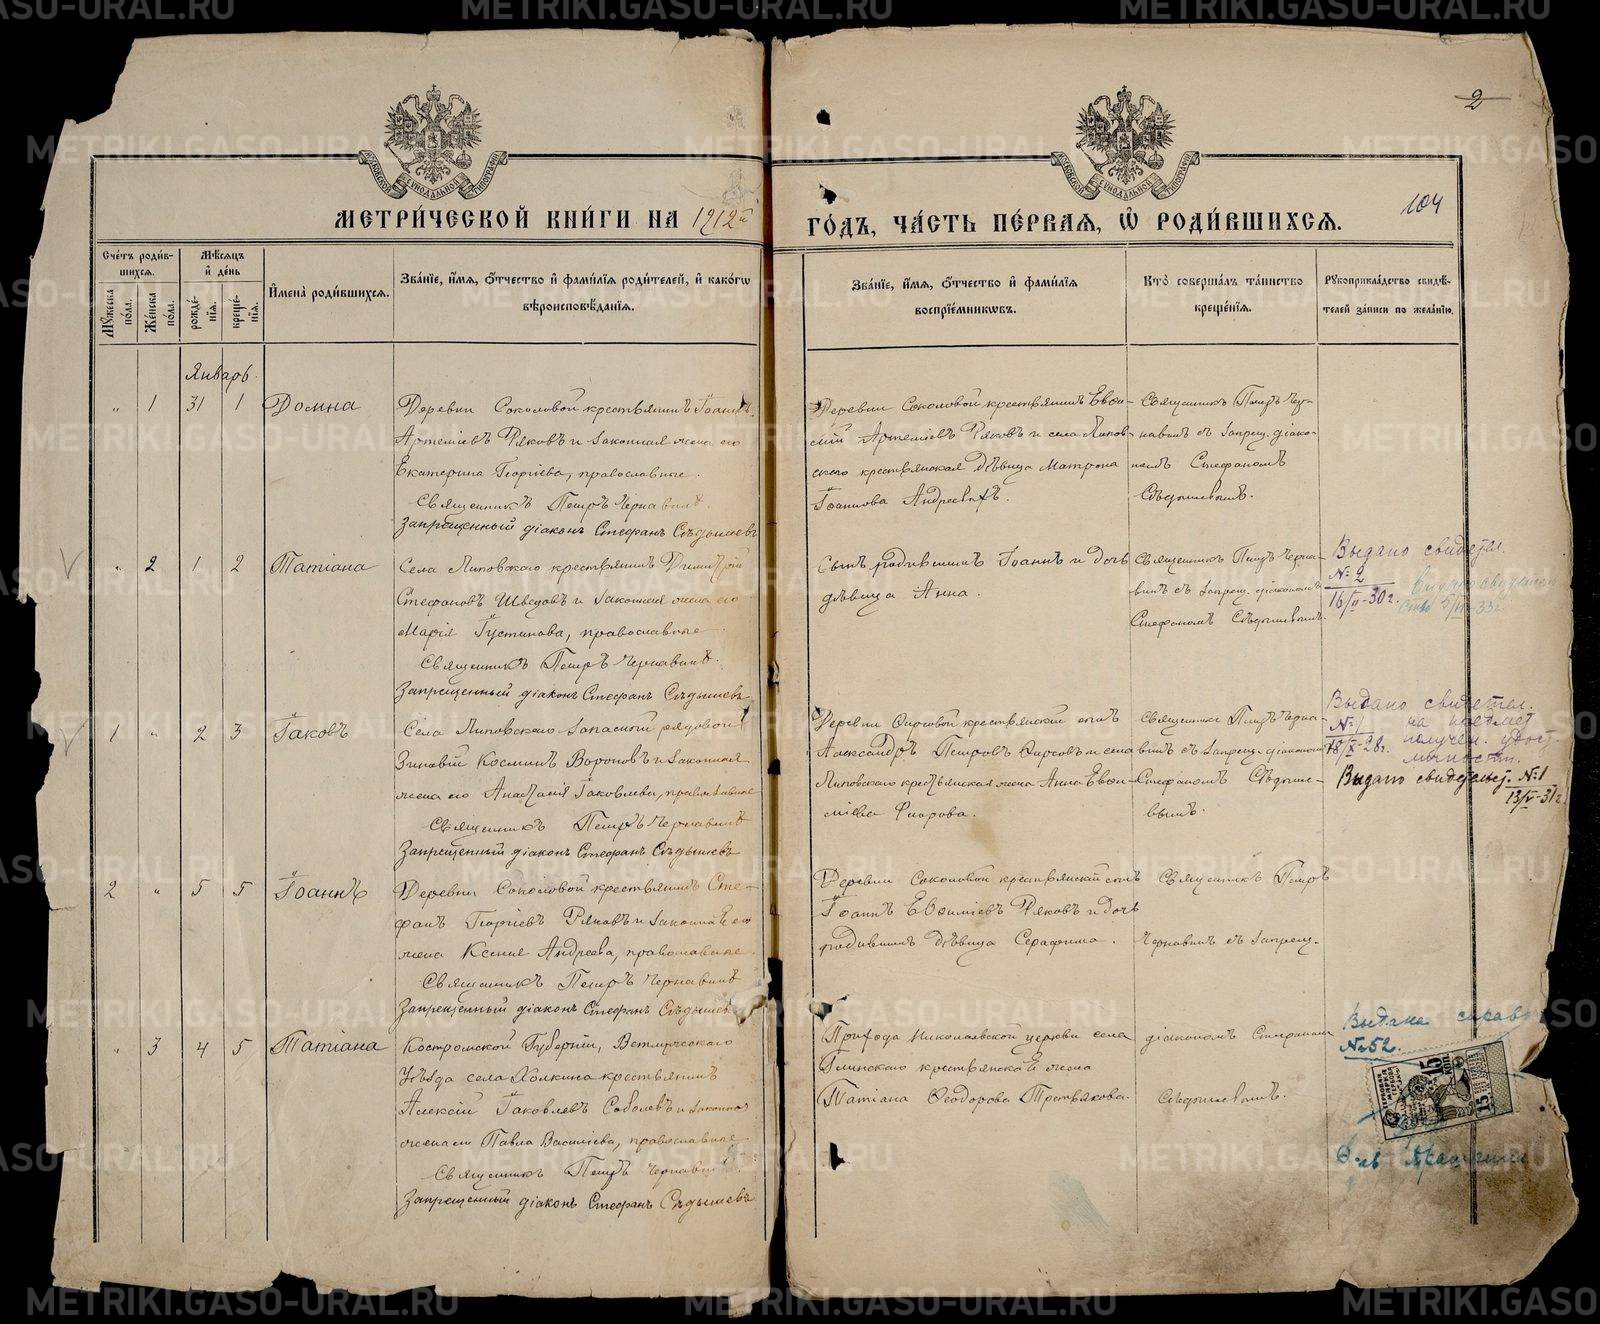 2
104
МЕТРИ́ЧЕСКОЙ КНИ́ГИ НА 1912й ГО́ДЪ, ЧА́СТЬ ПЕ́РВАЯ, Ѿ РОДИ́ВШИХСЯ.
МОСКОВСКОЙ СѴНОДАЛЬНОЙ ТИПОГРАФІИ
МОСКОВСКОЙ СѴНОДАЛЬНОЙ ТИПОГРАФІИ
Сче́тъ роди́в-
шихся.
Му́жеска по́ла.
Же́нска по́ла.
Мѣ́сяцъ
и҆ де́нь
рожде́-
нїя.
креще́-
нїя.
И҆мена̀ роди́вшихся.
Зва́нїе, и҆́мя, ѻ҆́тчество и҆ фами́лїя роди́телей, и҆ како́гѡ
вѣроисповѣ́данїя.
Зва́нїе, и҆́мя, ѻ҆́тчество и҆ фами́лїя
воспрїе́мникѡвъ.
Кто̀ соверша́лъ та́инство
креще́нїя.
Рꙋкоприкла́дство свидѣ́-
телей за́писи по жела́нїю.
Январь.
" 1 31 1 Домна
Деревни Соколовой крестьянинъ Іоаннъ
Артеміевъ Ряковъ и законная жена его
Екатерина Георгіева, православные.
Священникъ Петръ Чернавинъ.
Запрещенный діаконъ Стефанъ Сѣдышевъ
Деревни Соколовой крестьянинъ Евѳи-
мій Артеміевъ Ряковъ и села Липов-
скаго крестьянская дѣвица Матрона
Іоаннова Андреевыхъ.
Священникъ Петръ Чер-
навинъ съ запрещ. діако-
номъ Стефаномъ
Сѣдышевымъ.
" 2 1 2 Татіана
Села Липовскаго крестьянинъ Димитрій
Стефановъ Шведовъ и законная жена его
Марія Іустинова, православные
Священникъ Петръ Чернавинъ.
Запрещенный діаконъ Стефанъ Сѣдышевъ
Сынъ родившихъ Іоаннъ и дочь
дѣвица Анна.
Священникъ Петръ Черна-
винъ съ запрещ. діакономъ
Стефаномъ Сѣдышевымъ.
Выдано свидетел.
№ 2
16/II-30г.
1 " 2 3 Іаковъ
Села Липовскаго запасной рядовой
Зиновій Косминъ Вороновъ и законная
жена его Анастасія Іаковлева, православные
Священникъ Петръ Чернавинъ
Запрещенный діаконъ Стефанъ Сѣдышевъ
Деревни Фирсовой крестьянскій сынъ
Александръ Петровъ Фирсовъ и села
Липовскаго крестьянская жена Анна Евѳи-
міева
Священникъ Петръ Черна-
винъ съ запрещ. діакономъ
Стефаномъ Сѣдыше-
вымъ.
Выдано свидетел.
№ 1 на предмет
18/X-28г. получен. удост.
личности.
Выдано свидетел. №1
13/V-31г.
2 " 5 5 Іоаннъ
Деревни Соколовой крестьянинъ Сте-
фанъ Георгіевъ Ряковъ и законная его
жена Ксенія Андреева, православные.
Священникъ Петръ Чернавинъ
Запрещенный діаконъ Стефанъ Сѣдышевъ
Деревни Соколовой крестьянскій сынъ
Іоаннъ Евѳиміевъ Ряковъ и дочь
родившихъ дѣвица Серафима.
Священникъ Петръ
Чернавинъ съ запрещ.
" 3 4 5 Татіана
Костромской Губерніи, Ветлужскаго
Уѣзда села Холкина крестьянинъ
Алексій Іаковлевъ Соболевъ и законная
жена его Павла Василіева, православные.
Священникъ Петръ Чернавинъ.
Запрещенный діаконъ Стефанъ Сѣдышевъ
Прихода Николаевской церкви села
Глинскаго крестьянская жена
Татіана Ѳеодорова Третьякова.
діакономъ Стефаномъ
Сѣдышевымъ.
Выдана справ
№52.
15 КОП
15